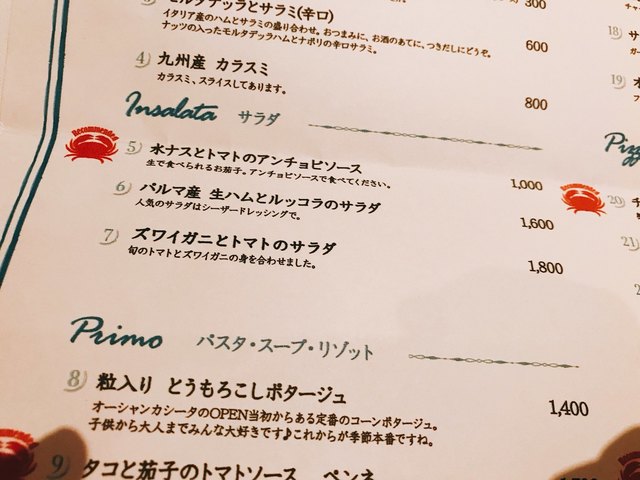 300
モルタデッラとサラミ(辛口)
イタリア産のハムとサラミの盛り合わせ。おつまみに、お酒のあてに、つきだしにどうぞ。
ナッツの入ったモルタデッラハムとナポリの辛口サラミ。
600
4) 九州産 カラスミ
カラスミ、スライスしてあります。
800
Insalata サラダ
Recommended
5) 水ナスとトマトのアンチョビソース
生で食べられるお茄子。アンチョビソースで食べてください。
1,000
6) パルマ産 生ハムとルッコラのサラダ
人気のサラダはシーザードレッシングで。
1,600
7) ズワイガニとトマトのサラダ
旬のトマトとズワイガニの身を合わせました。
1,800
Primo パスタ・スープ・リゾット
8) 粒入り とうもろこしポタージュ
オーシャンカシータのOPEN当初からある定番のコーンポタージュ。
子供から大人までみんな大好きです♪これからが季節本番ですね。
1,400
9) タコと茄子のトマトソース ペンネ
18)
19)
Pizz
Recommended
20)
21)